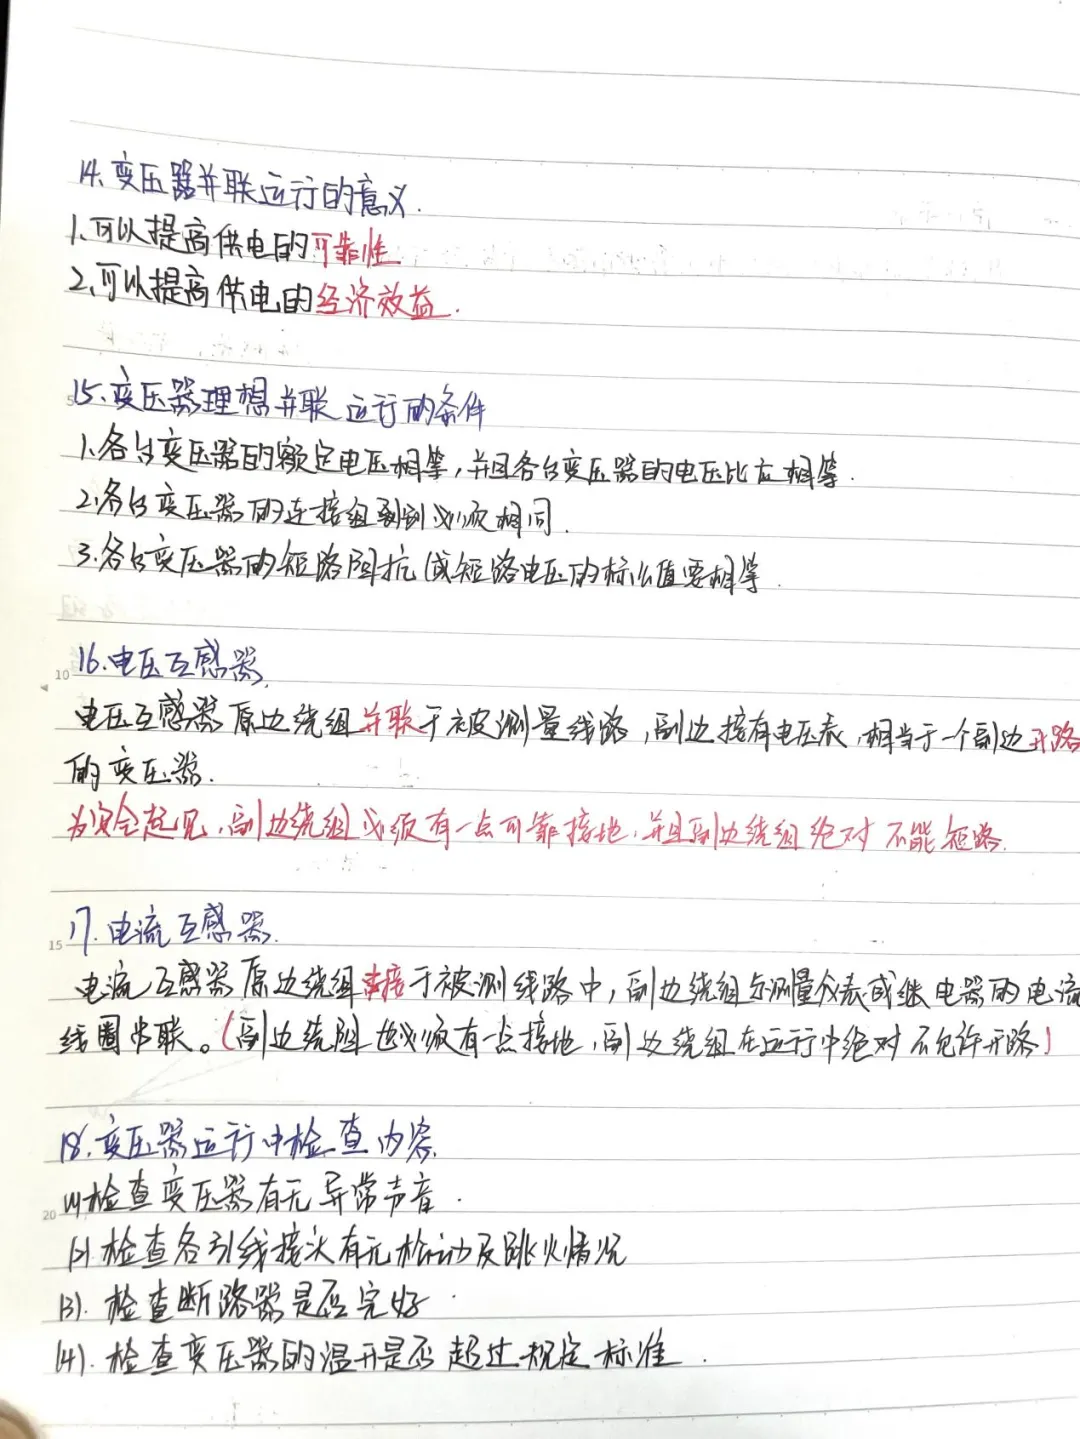 14.变压器并联运行的意义.
1.可以提高供电的可靠性
2.可以提高供电的经济效益.
15.变压器理想并联运行的条件
1.各台变压器的额定电压相等,并且各台变压器的电压比应相等.
2.各台变压器的连接组别必须相同.
3.各台变压器的短路阻抗(或短路电压的标么值要相等.
10
16.电压互感器.
电压互感器原边绕组并联于被测量线路,副边接有电压表,相当于一个副边开路
的变压器.
为安全起见,副边绕组必须有一点可靠接地,并且副边绕组绝对不能短路.
17.电流互感器.
15
电流互感器原边绕组串接于被测线路中,副边绕组与测量仪表或继电器的电流
线圈串联。(副边绕阻也必须有一点接地,副边绕组在运行中绝对不允许开路)
18.变压器运行中检查内容.
(1)检查变压器有无异常声音.
20
(2)检查各引线接头有无松动及跳火情况
(3).检查断路器是否完好.
(4).检查变压器的温升是否超过规定标准.